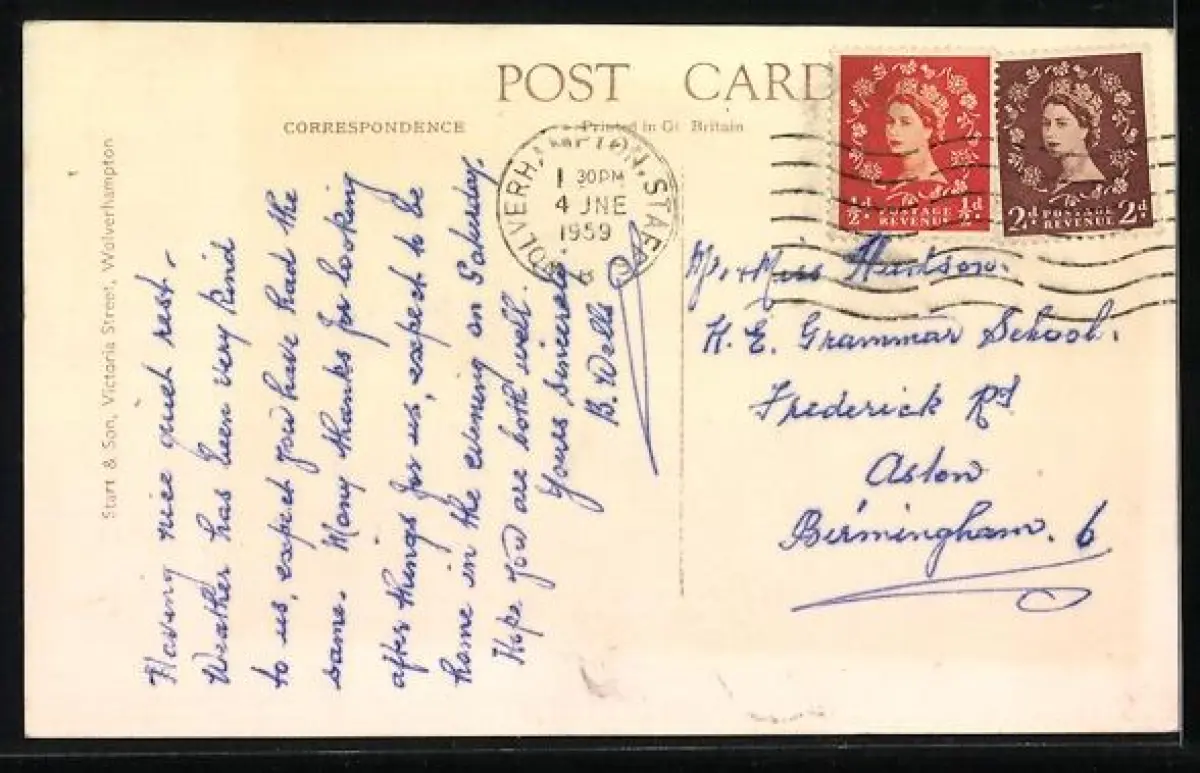 POST CARD
CORRESPONDENCE
Printed in Gt. Britain
WOLVERHAMPTON, STAFFS
1 30PM
4 JNE
1959
B
½d POSTAGE REVENUE ½d
2d POSTAGE REVENUE 2d
Start & Son, Victoria Street, Wolverhampton
Having nice quiet rest.
Weather has been very kind
to us, expect you have had the
same. Many thanks for looking
after things for us, expect to be
home in the evening on Saturday.
Hope you are both well.
Yours sincerely.
B. Wells
Mr. & Miss
K. E. Grammar School.
Frederick Rd
Aston
Birmingham. 6